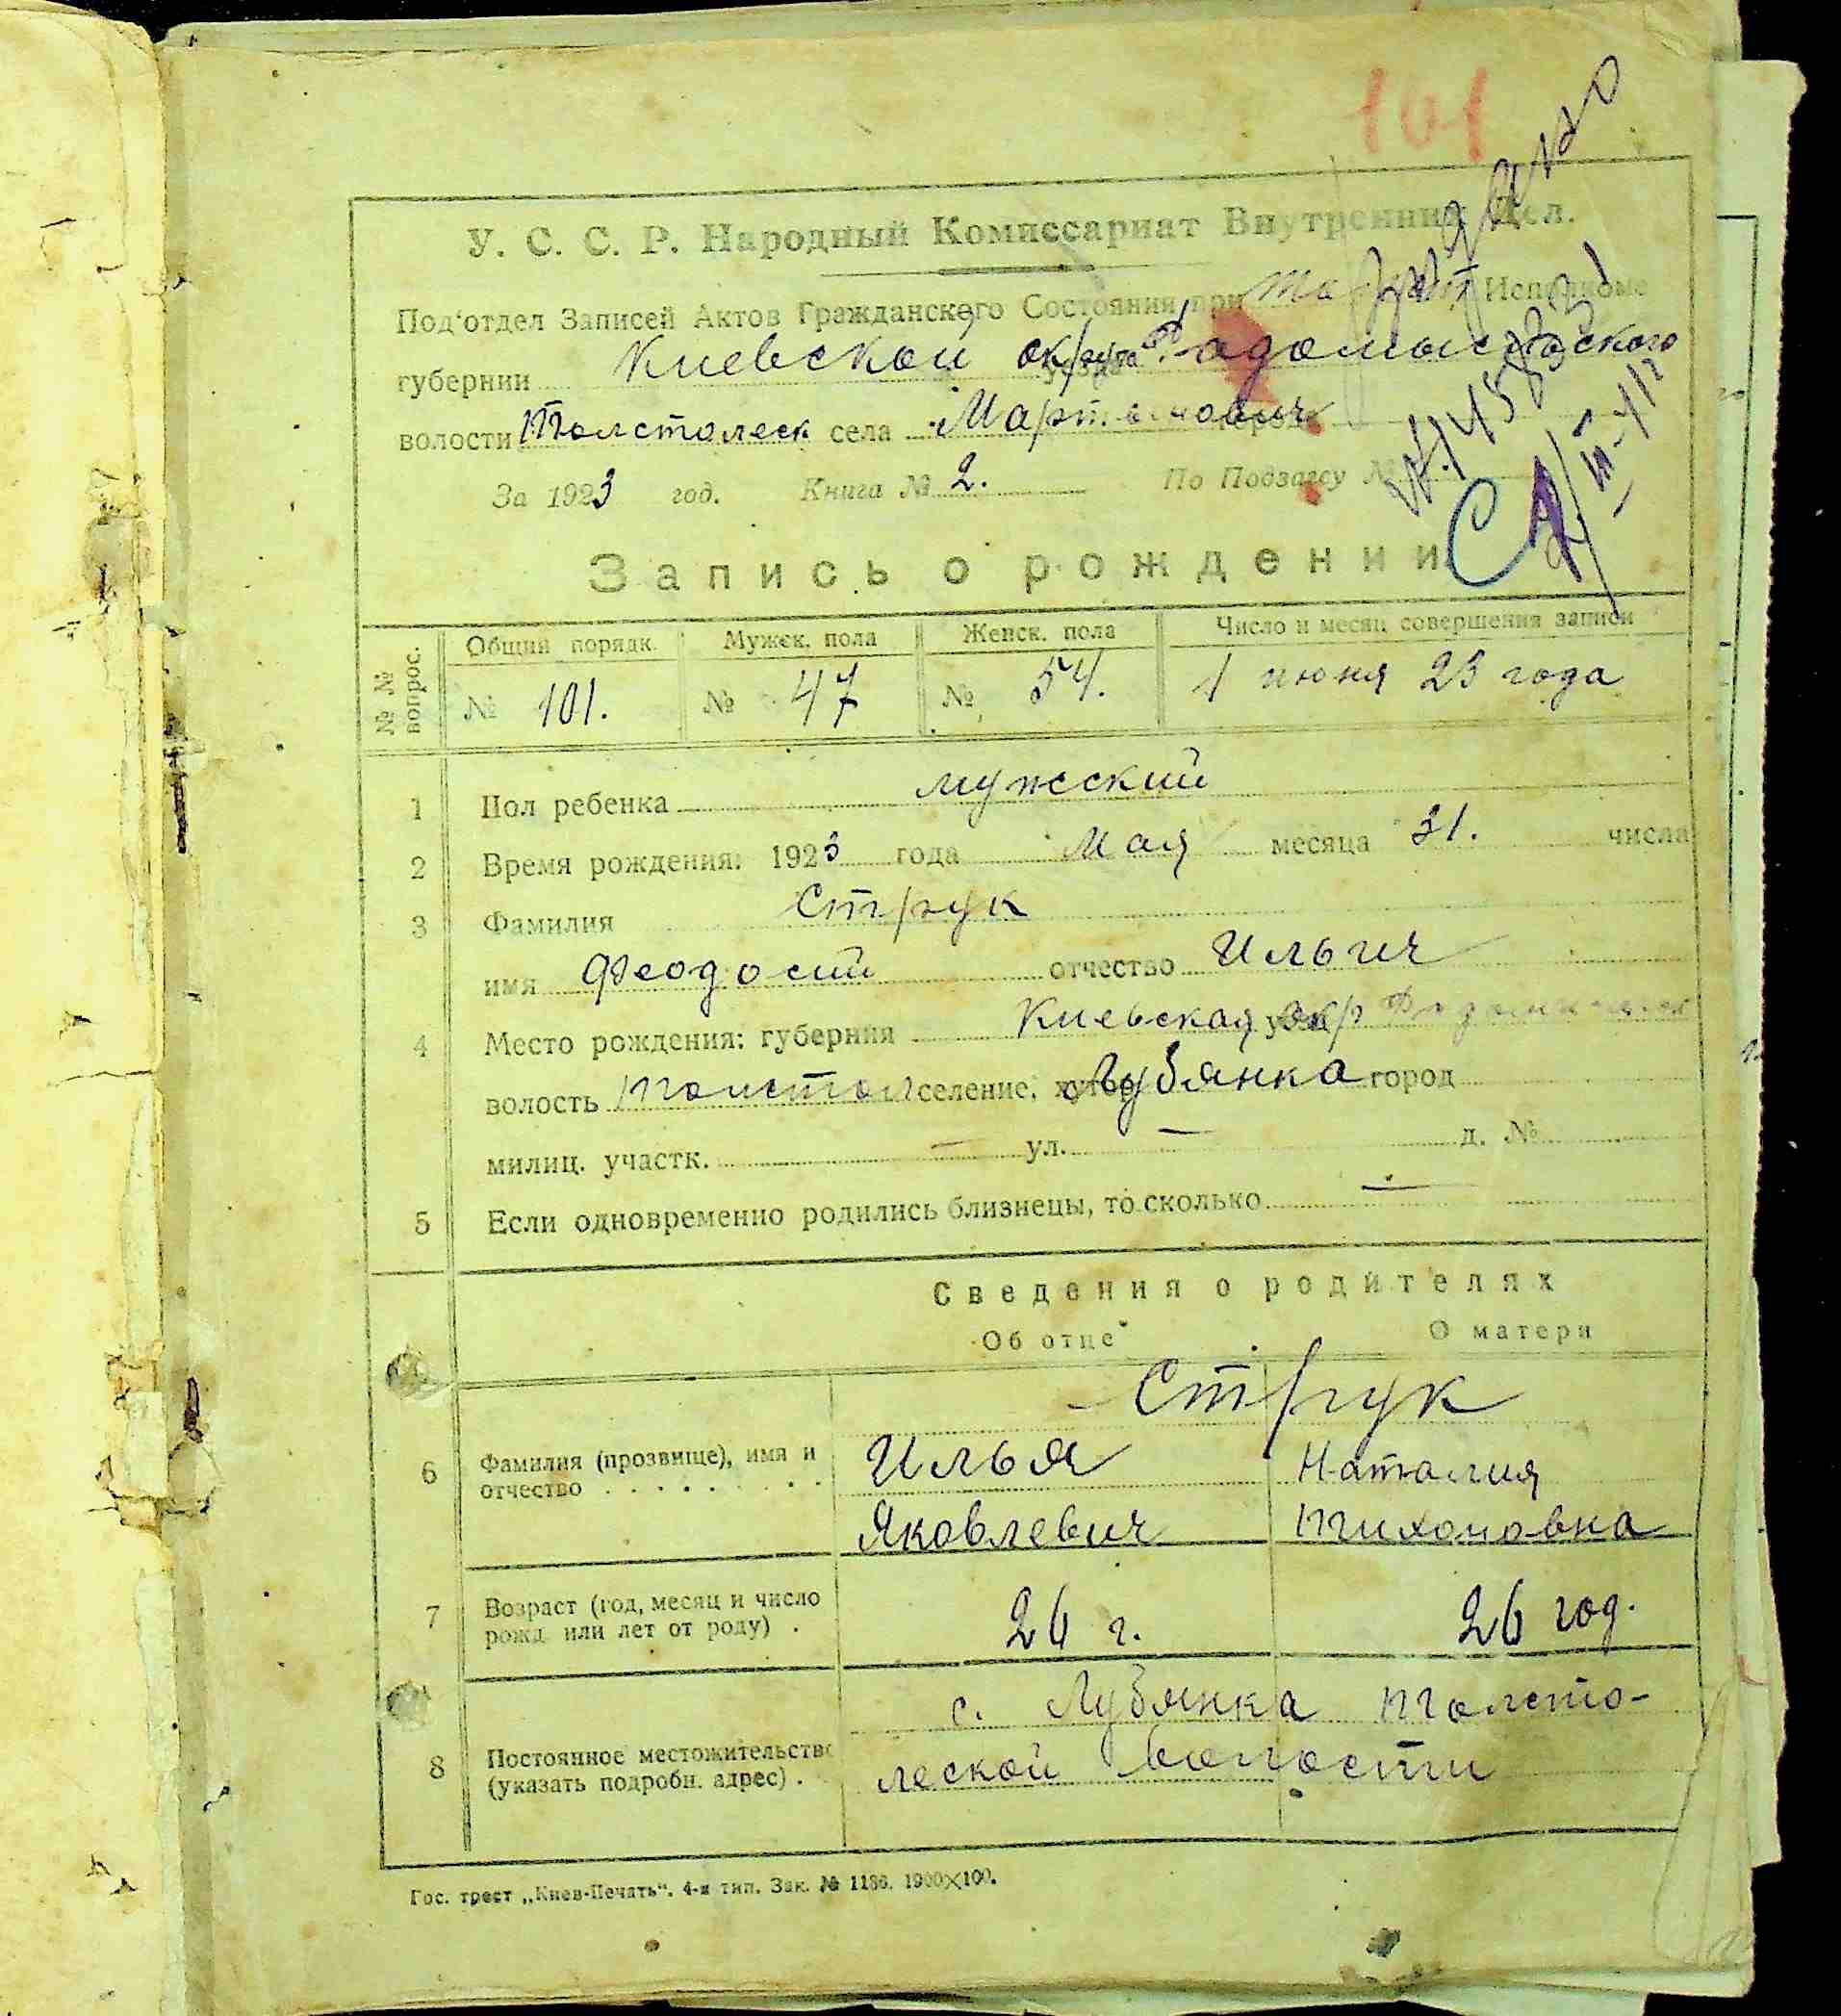 101
У. С. С. Р. Народный Комиссариат Внутренних Дел.
Под'отдел Записей Актов Гражданского Состояния при Исполкоме
губернии Киевской округа Радомысльского
волости Толстолеск села Мартынович
За 1923 год. Книга № 2. По Подзагсу №
Запись о рождении
№ № вопрос. Общий порядк. Мужск. пола Женск. пола Число и месяц совершения записи
№ 101. № 47 № 54. 1 июня 23 года
1 Пол ребенка мужский
2 Время рождения: 1923 года Мая месяца 31. числа
3 Фамилия Струк
имя Феодосий отчество Ильич
4 Место рождения: губерния Киевская уезд окр
волость Толстол селение, хутор Лубянка город
милиц. участк. — ул. — д. №
5 Если одновременно родились близнецы, то сколько —
Сведения о родителях
Об отце О матери
Струк
6 Фамилия (прозвище), имя и отчество . . . . . . . . Илья Наталия
Яковлевич Тихоновна
7 Возраст (год, месяц и число рожд. или лет от роду) . 26 г. 26 год.
8 Постоянное местожительство (указать подробн. адрес) . с. Лубянка Толсто-
леской волости
Гос. трест „Киев-Печать“. 4-я тип. Зак. № 1186. 1900×100.